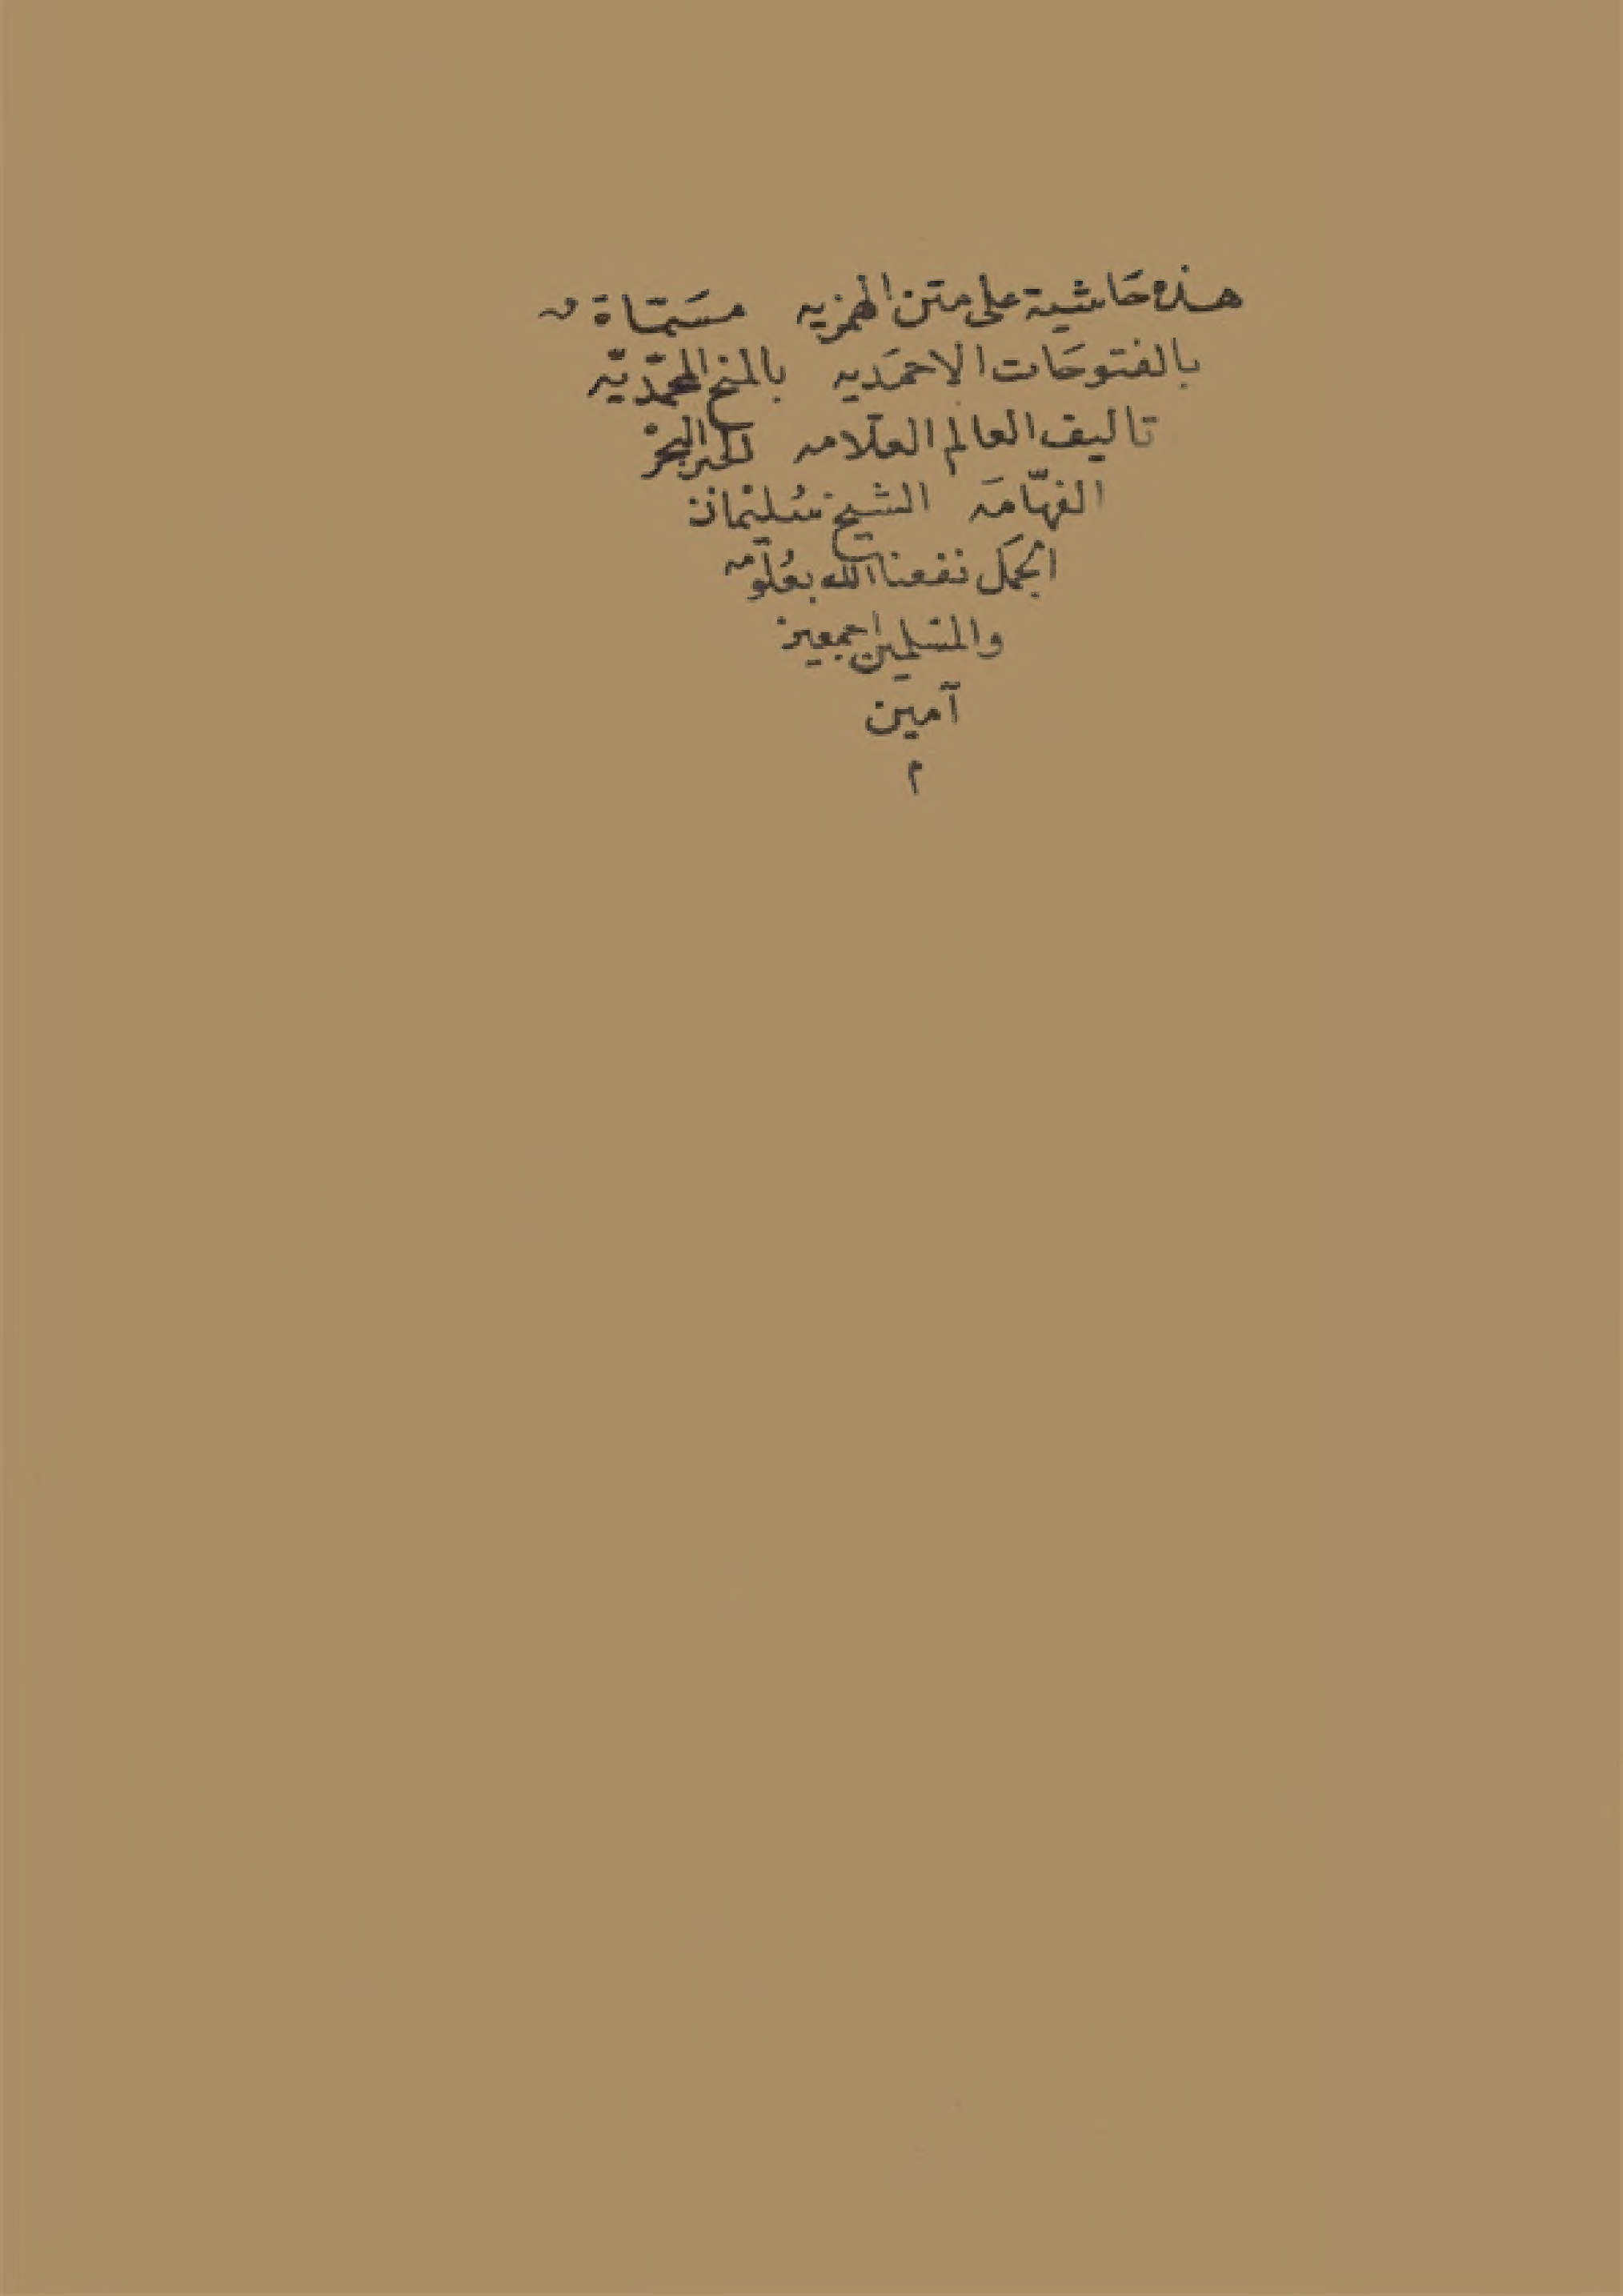 هذه حَاشية على متن الهمزيه مسَمّاة
بالفتوحَات الاحمَديه بالمنح المحمّديّه
تاليف العالم العلّامه الحبر البحرْ
الفهّامَه الشيخ سُليْمان
الجمَل نفعنا الله بعُلُومه
والمسلمين اجمعين
آمين
م